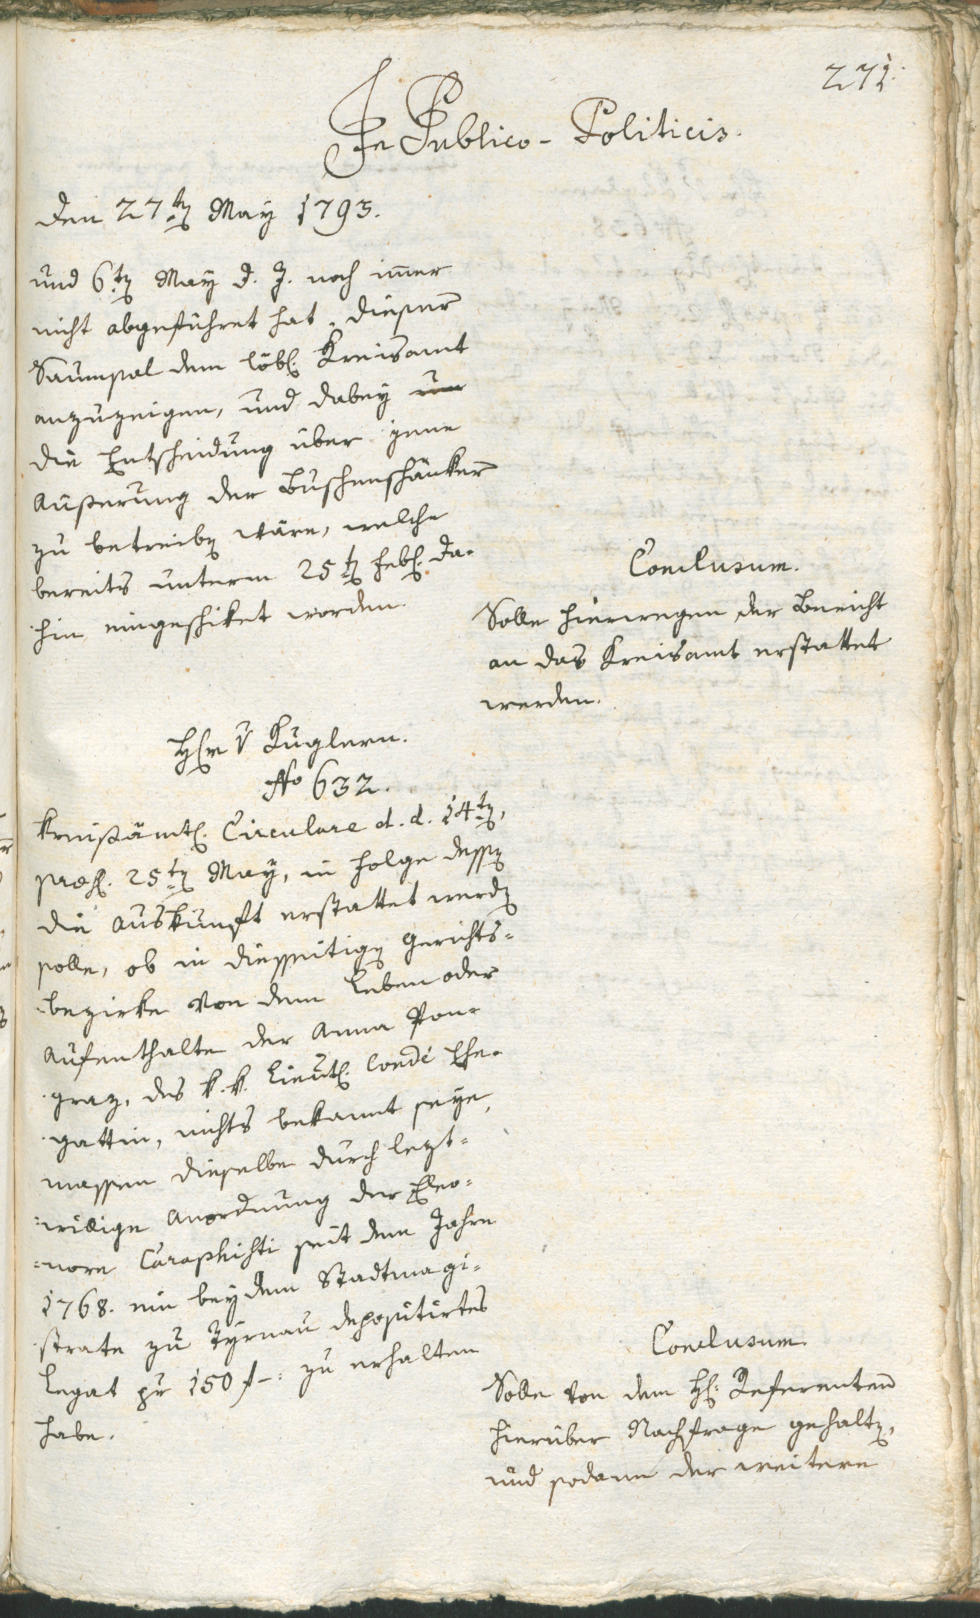 271.
In Publico - Politicis.
Den 27ten May 1793.
und 6ten May d. J. noch immer
nicht abgeführet hat, dieser
Saumsal dem löbl. Kreisamt
anzuzeigen, und dabey um
die Entscheidung über jene
Äußerung der Buschenschänker
zu betreiben wäre, welche
bereits unterm 25ten Febr. da-
hin eingeschiket worden.
Conclusum.
Solle hierwegen der Bericht
an das Kreisamt erstattet
werden.
Hr. v Kuglern.
No 632.
Kreisämtl. Circulare d. d. 14ten,
præs. 25ten May, in Folge dessen
die Auskunft erstattet werden
solle, ob in diesseitigen Gerichts=
bezirke von dem Leben oder
Aufenthalte der Anna Pon-
graz, des k. k. Lieutl. Conde Ehe-
gattin, nichts bekannt seye,
massen dieselbe durch lezt=
willige Anordnung der Eleo=
=nore Caraphichti seit dem Jahre
1768. ein bey dem Stadtmagi=
strate zu Tyrnau depositirtes
Legat pr 150 f -: zu erhalten
habe.
Conclusum.
Solle von dem H. Referenten
hierüber Nachfrage gehalten,
und sodann der weitere